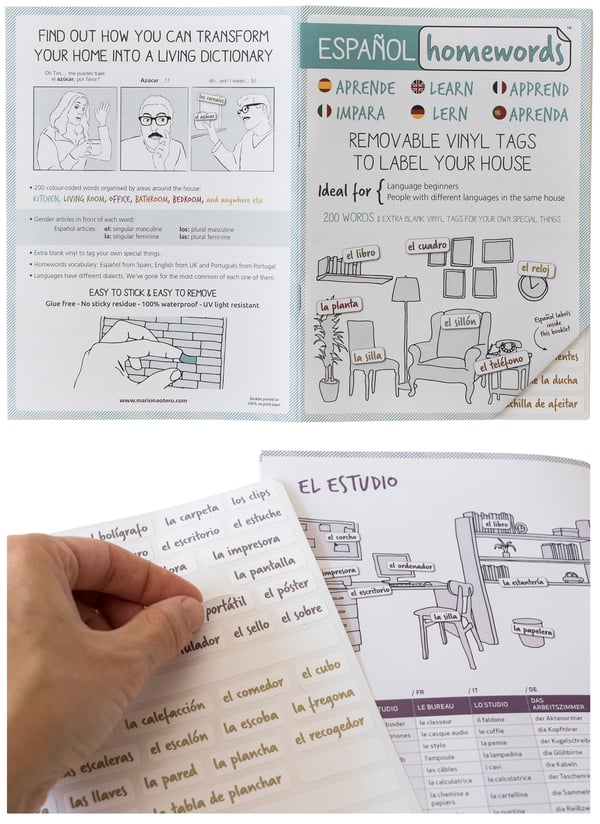 FIND OUT HOW YOU CAN TRANSFORM
YOUR HOME INTO A LIVING DICTIONARY
Oh Tim... me puedes traer
el azúcar, por favor?
Azúcar ...??
Ah...yes! I mean... Sí!
los cereales
el azúcar
• 200 colour-coded words organised by areas around the house:
KITCHEN, LIVING ROOM, OFFICE, BATHROOM, BEDROOM, and anywhere else
• Gender articles in front of each word:
Español articles: el: singular masculine los: plural masculine
la: singular feminine las: plural feminine
• Extra blank vinyl to tag your own special things.
• Homewords vocabulary: Español from Spain, English from UK and Português from Portugal.
• Languages have different dialects. We've gone for the most common of each one of them.
EASY TO STICK & EASY TO REMOVE
Glue free - No sticky residue - 100% waterproof - UV light resistant
www.marionaotero.com
Booklet printed on
100% recycled paper
ESPAÑOL homewords™
APRENDE LEARN APPREND
IMPARA LERN APRENDA
REMOVABLE VINYL TAGS
TO LABEL YOUR HOUSE
Ideal for { Language beginners
People with different languages in the same house
200 WORDS & EXTRA BLANK VINYL TAGS FOR YOUR OWN SPECIAL THINGS
el libro
el cuadro
el reloj
la planta
el sillón
la silla
el teléfono
Español labels
inside
this booklet
entes
e la ducha
chilla de afeitar
EL ESTUDIO
bolígrafo la carpeta los clips
el escritorio el estuche
la impresora
la pantalla
portátil el póster
ulador el sello el sobre
la calefacción el comedor el cubo
as escaleras el escalón la escoba la fregona
las llaves la pared la plancha el recogedor
a tabla de planchar
el corcho
impresora
el escritorio
el ordenador
el libro
la estantería
la silla
la papelera
/ FR / IT / DE
TUDIO LE BUREAU LO STUDIO DAS ARBEITSZIMMER
binder le classeur il faldone der Aktenordner
phones le casque audio le cuffie die Kopfhörer
le stylo la penna der Kugelschreibe
l'ampoule la lampadina die Glühbirne
les câbles i cavi die Kabeln
la calculatrice la calcolatrice der Taschenre
la chemise a papiers la cartellina die Sammeln